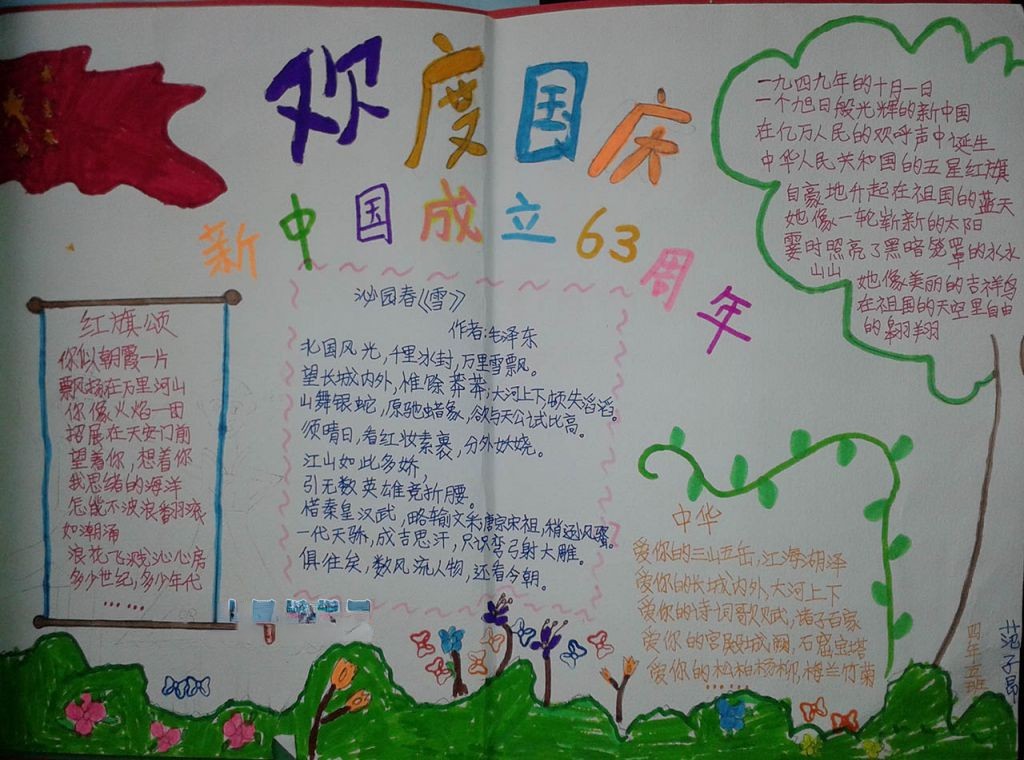 欢度国庆
新中国成立63周年
红旗颂
你似朝霞一片
飘扬在万里河山
你像火焰一团
招展在天安门前
望着你,想着你
我思绪的海洋
怎能不波浪翻滚
如潮涌
浪花飞溅沁心房
多少世纪,多少年代
……
沁园春《雪》
作者:毛泽东
北国风光,千里冰封,万里雪飘。
望长城内外,惟馀莽莽;大河上下顿失滔滔。
山舞银蛇,原驰蜡象,欲与天公试比高。
须晴日,看红妆素裹,分外妖娆。
江山如此多娇,
引无数英雄竞折腰。
惜秦皇汉武,略输文采唐宗宋祖,稍逊风骚。
一代天骄,成吉思汗,只识弯弓射大雕。
俱往矣,数风流人物,还看今朝。
一九四九年的十月一日
一个旭日般光辉的新中国
在亿万人民的欢呼声中诞生
中华人民共和国的五星红旗
自豪地升起在祖国的蓝天
她像一轮崭新的太阳
霎时照亮了黑暗笼罩的水水
山山 她像美丽的吉祥鸟
在祖国的天空里自由
的翱翔
中华
爱你的三山五岳,江海湖泽
爱你的长城内外,大河上下
爱你的诗词歌赋,诸子百家
爱你的宫殿城阙,石窟宝塔
爱你的松柏杨柳,梅兰竹菊
……
四年五班
范子昂